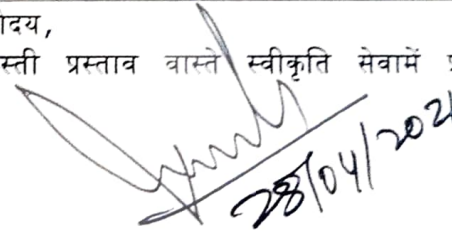 ोदय,
स्ती प्रस्ताव वास्ते स्वीकृति सेवामें
28/04/202